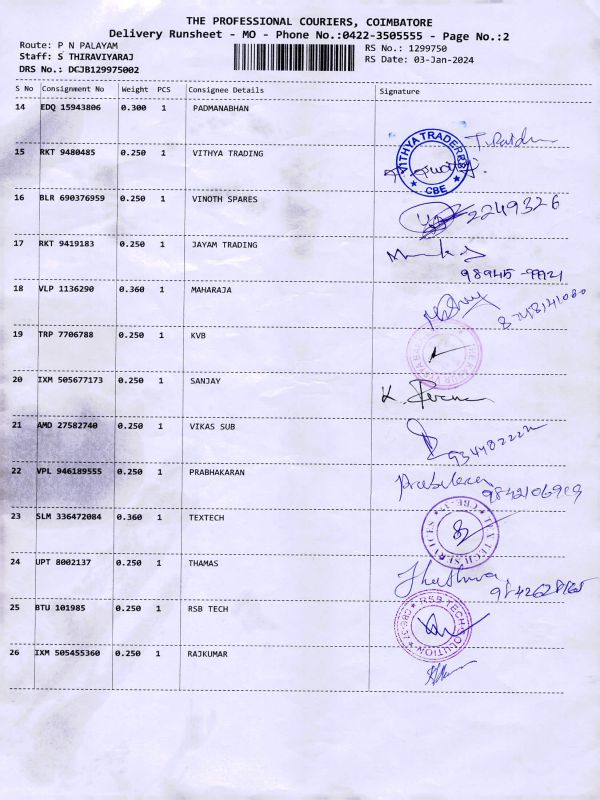 THE PROFESSIONAL COURIERS, COIMBATORE
Delivery Runsheet - MO - Phone No.:0422-3505555 - Page No.:2
Route: P N PALAYAM
RS No.: 1299750
Staff: S THIRAVIYARAJ
RS Date: 03-Jan-2024
DRS No.: DCJB129975002
S No Consignment No Weight PCS Consignee Details Signature
14 EDQ 15943806 0.300 1 PADMANABHAN
15 RKT 9480485 0.250 1 VITHYA TRADING
VITHYA TRADERS
CBE
16 BLR 690376959 0.250 1 VINOTH SPARES
2249326
17 RKT 9419183 0.250 1 JAYAM TRADING
18 VLP 1136290 0.360 1 MAHARAJA
19 TRP 7706788 0.250 1 KVB
20 IXM 505677173 0.250 1 SANJAY
21 AMD 27582740 0.250 1 VIKAS SUB
22 VPL 946189555 0.250 1 PRABHAKARAN
23 SLM 336472084 0.360 1 TEXTECH
24 UPT 8002137 0.250 1 THAMAS
25 BTU 101985 0.250 1 RSB TECH
RSB TECH SOLUTION
26 IXM 505455360 0.250 1 RAJKUMAR